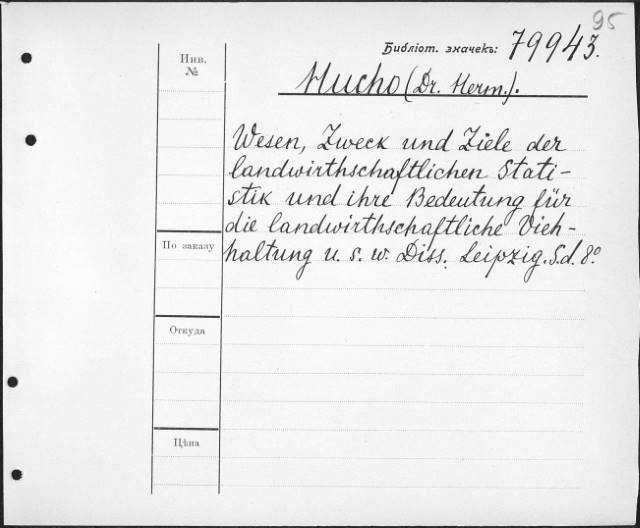 95
Библіот. значекъ: 79943.
Инв.
№
Mucho (Dr. Herm.).
Wesen, Zweck und Ziele der
landwirthschaftlichen Stati-
stik und ihre Bedeutung für
die landwirthschaftliche Vieh-
haltung u. s. w. Diss. Leipzig. S.d. 8.º
По заказу
Откуда
Цѣна